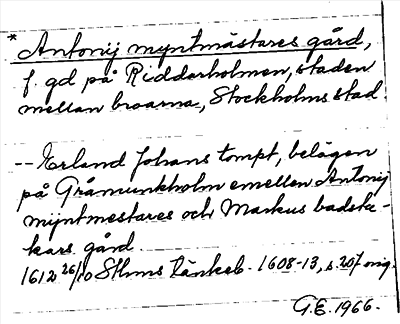 * Antonij myntmästares gård,
f. gd på Riddarholmen, staden
mellan broarna, Stockholms stad.
-- Erland Johans tompt, belägen
på Gråmunkholm emellan Antonij
myntmestares och Markus badstu-
kars gård.
1612 26/10 Sthms tänkeb. 1608-13, s. 207 orig.
G.E. 1966.